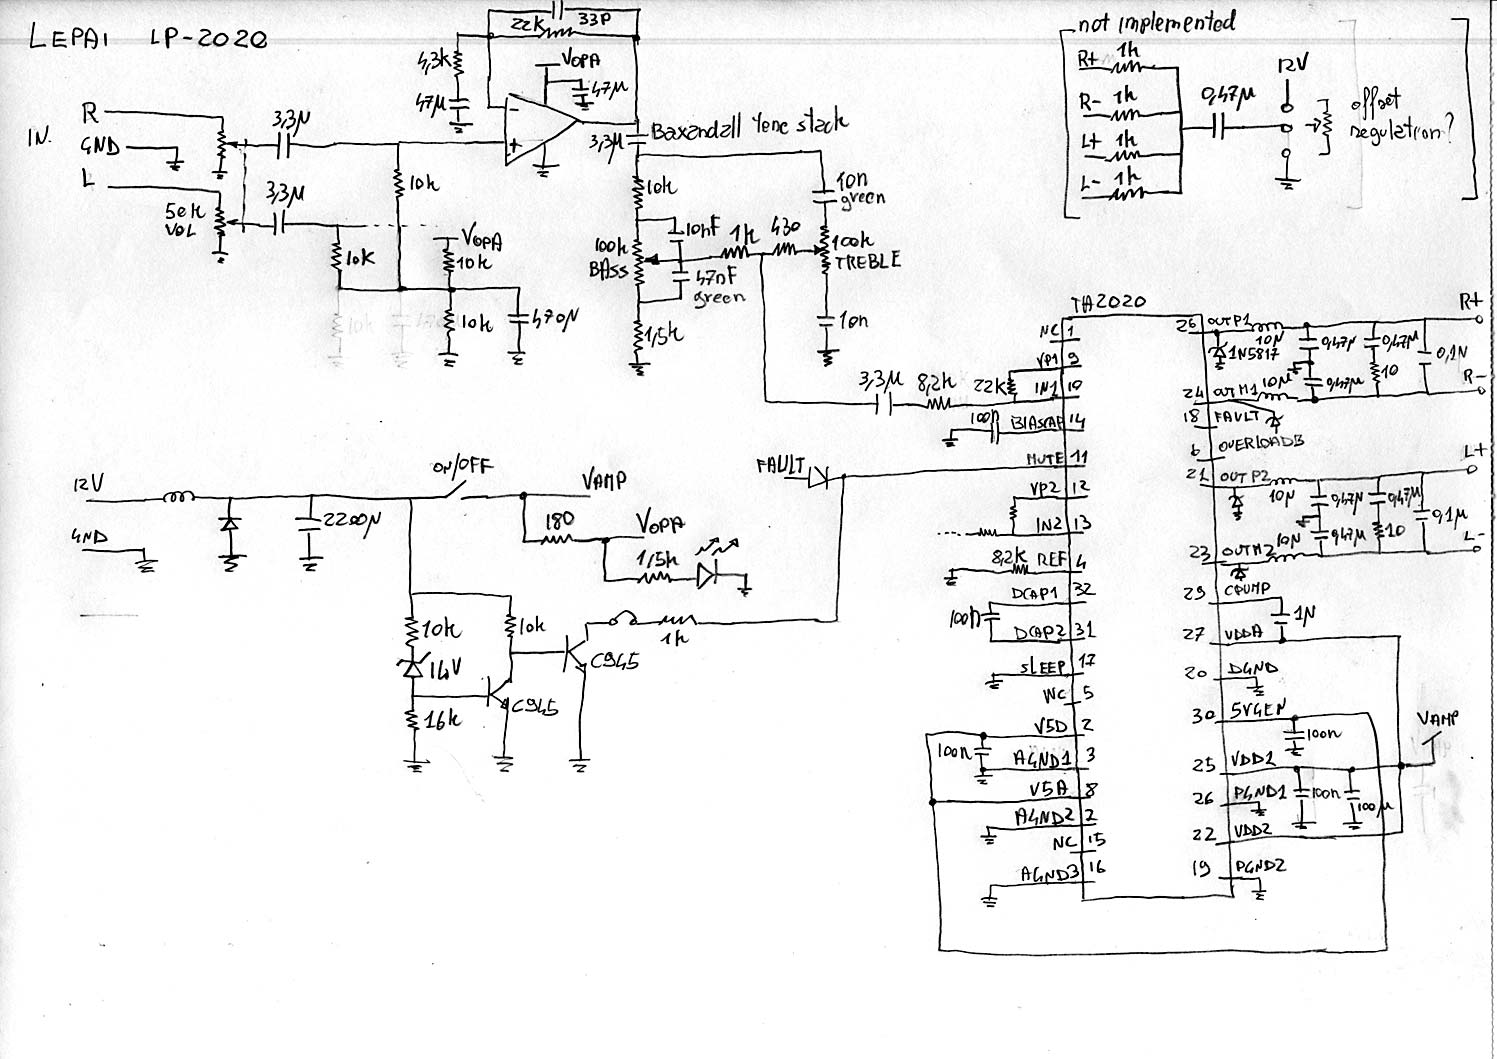 LEPAI LP-2020
22K 33P
4,3K
VOPA
47µ
47µ
IN.
R
GND
L
50K
VOL
3,3µ
3,3µ
10K
10K
VOPA
10K
10K
470µ
10K
-
+
3,3µ
Baxandall Tone stack
10K
10nF
100K
BASS
47nF
green
1,5K
1K
430
10n
green
100K
TREBLE
10n
not implemented
R+ 1K
R- 1K
L+ 1K
L- 1K
0,47µ
12V
offset
regulation?
TA2020
3,3µ
8,2K
22K
100n
NC 1
VP1 9
IN1 10
BIASCAP 14
MUTE 11
VP2 12
IN2 13
8,2K REF 4
DCAP1 32
100n
DCAP2 31
SLEEP 17
NC 5
V5D 2
100n
AGND1 3
V5A 8
AGND2 2
NC 15
AGND3 16
26 OUTP1
10µ
1N5817
0,47µ
0,47µ
0,1µ
R+
10µ
0,47µ
10
R-
24 OUTM1
18 FAULT
6 OVERLOADB
21 OUTP2
10µ
0,47µ
0,47µ
L+
0,1µ
10µ
0,47µ
10
L-
23 OUTM2
29 CPUMP
1µ
27 VDDA
20 DGND
30 5VGEN
100n
VAMP
25 VDD1
26 PGND1
100n
100µ
22 VDD2
19 PGND2
12V
GND
2200µ
ON/OFF
VAMP
180
VOPA
1,5K
FAULT
10K
10K
14V
16K
C945
C945
1K